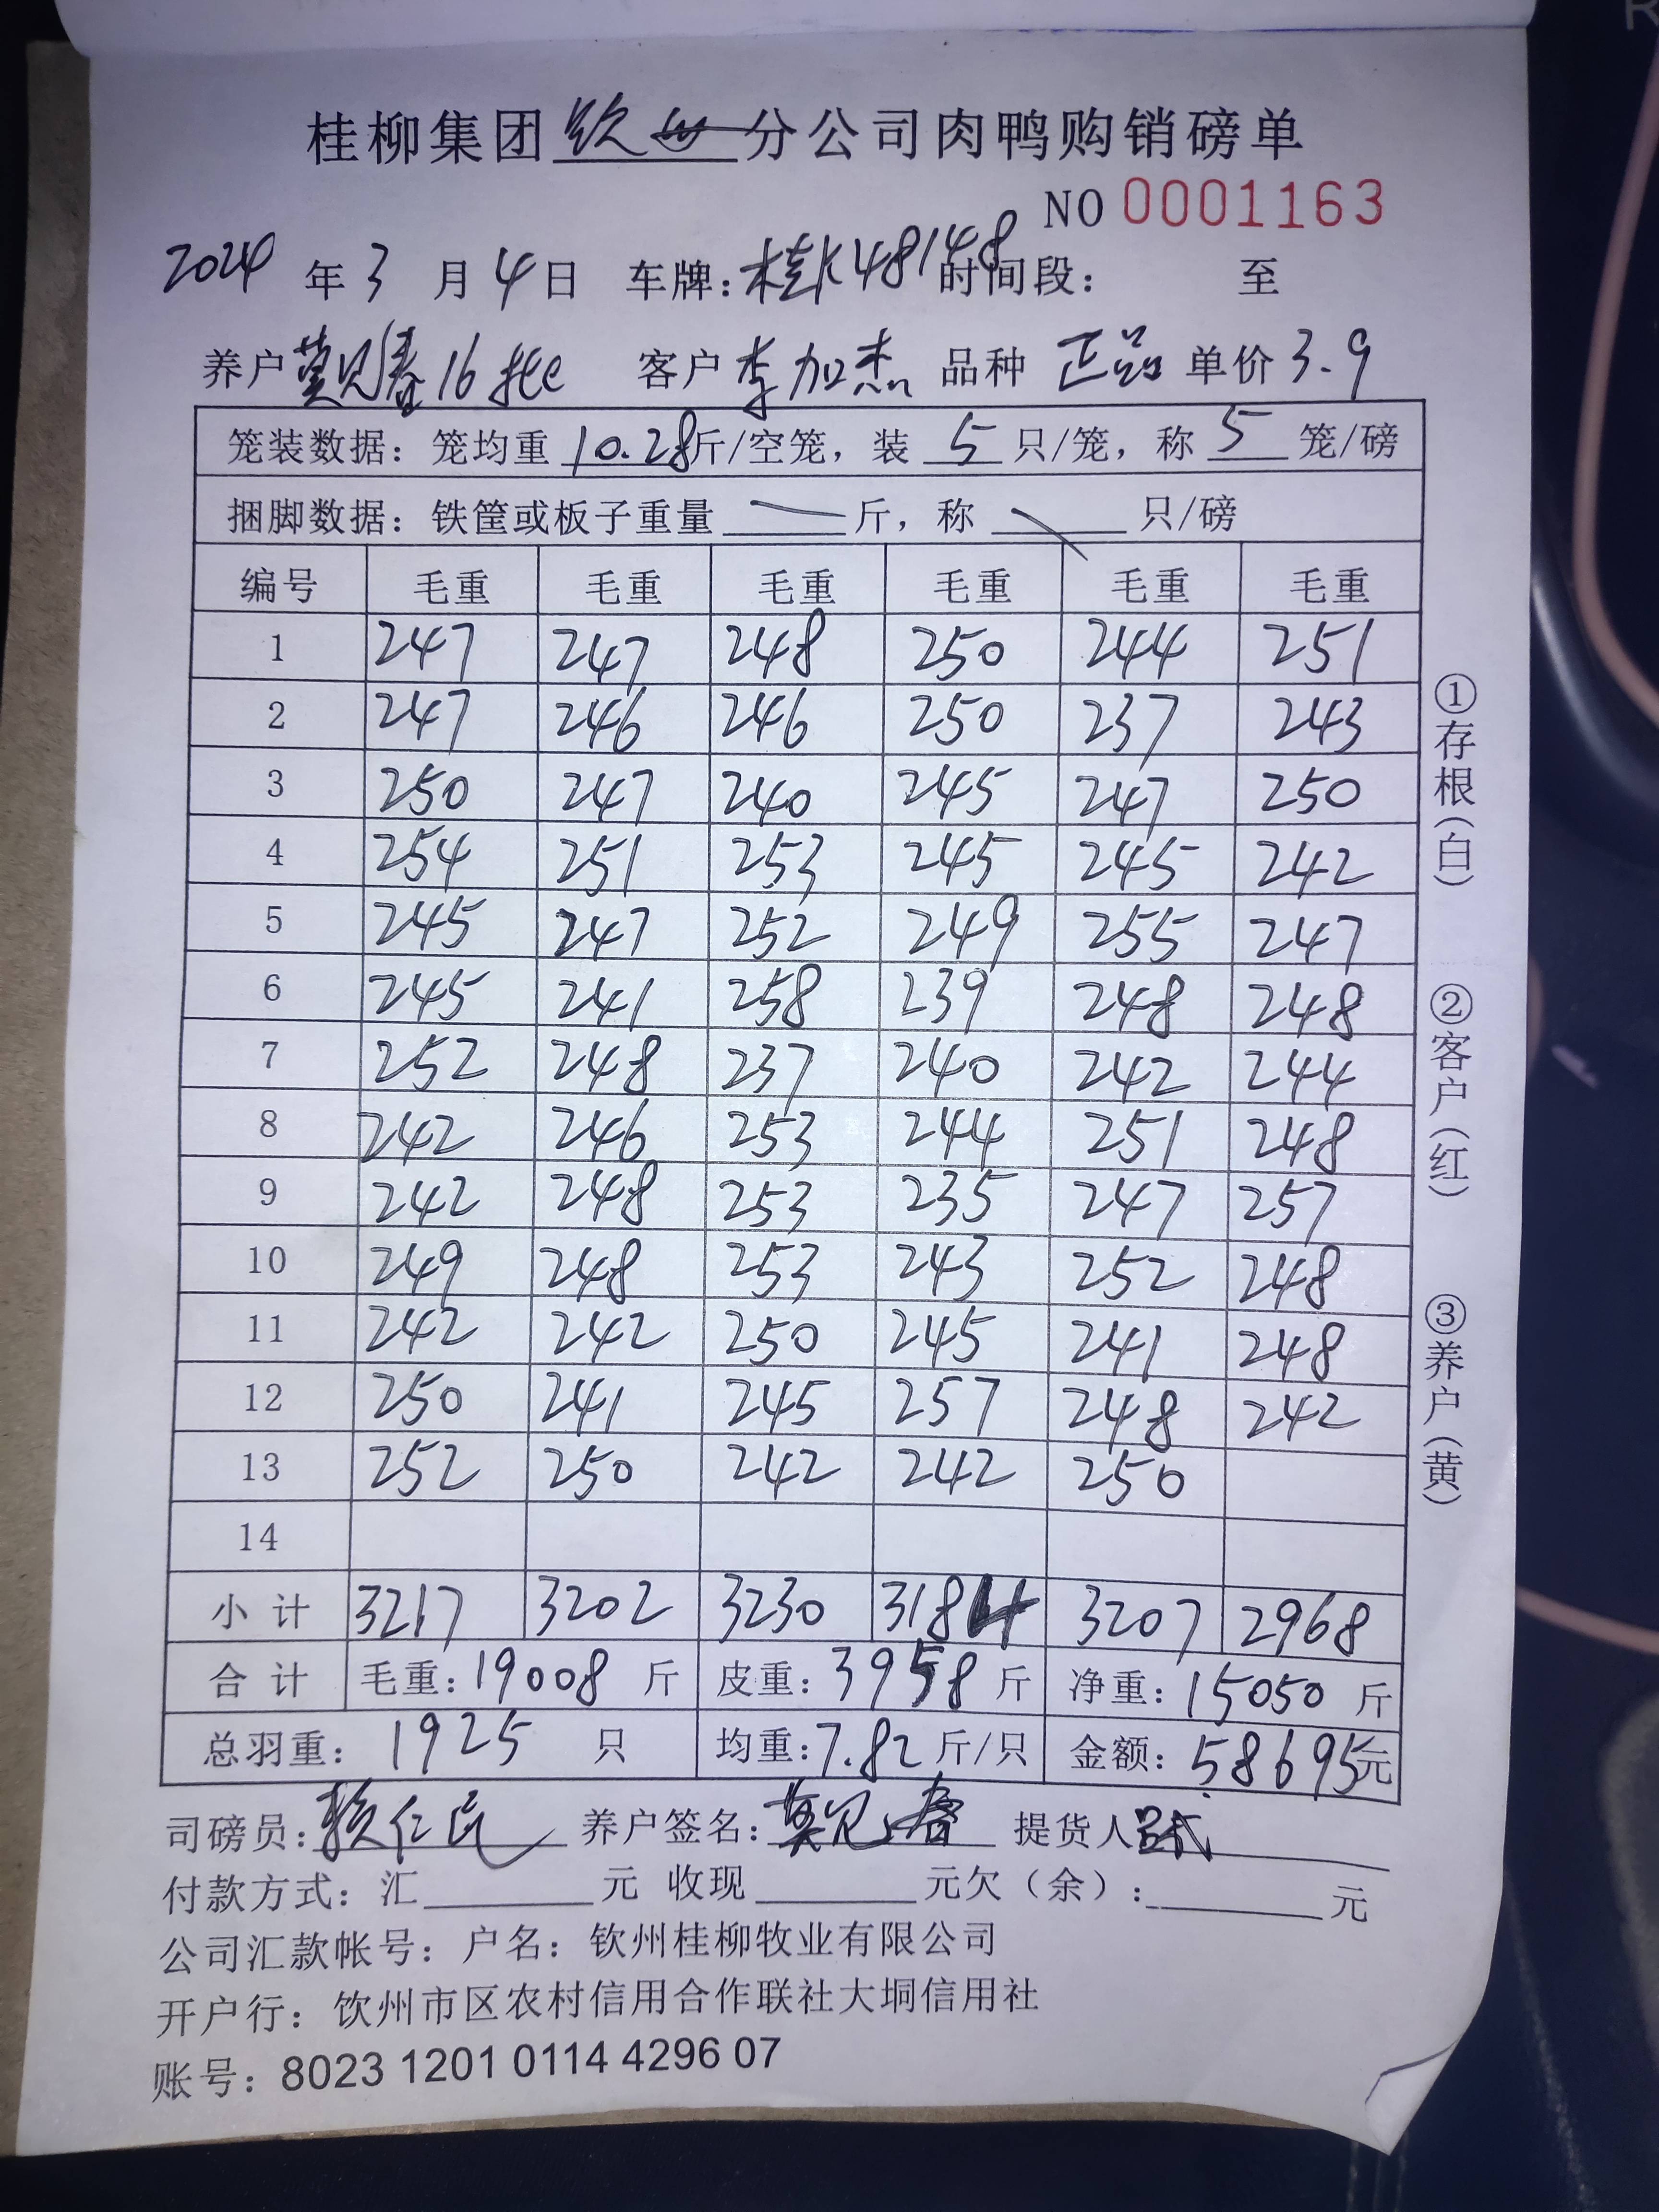 桂柳集团钦州分公司肉鸭购销磅单
NO 0001163
2024年3月4日 车牌:桂K48148 时间段: 至
养户 莫见春16批 客户 李加杰 品种 正品 单价3.9
笼装数据:笼均重 10.28斤/空笼,装 5 只/笼,称 5 笼/磅
捆脚数据:铁筐或板子重量 — 斤,称 — 只/磅
编号 毛重 毛重 毛重 毛重 毛重 毛重
1 247 247 248 250 244 251
2 247 246 246 250 237 243
3 250 247 240 245 247 250
4 254 251 253 245 245 242
5 245 247 252 249 255 247
6 245 241 258 239 248 248
7 252 248 237 240 242 244
8 242 246 253 244 251 248
9 242 248 253 235 247 257
10 249 248 253 243 252 248
11 242 242 250 245 241 248
12 250 241 245 257 248 242
13 252 250 242 242 250
14
小计 3217 3202 3230 3184 3207 2968
合计 毛重:19008斤 皮重:3958斤 净重:15050斤
总羽重:1925 只 均重:7.82斤/只 金额:58695元
司磅员:赖仁民 养户签名:莫见春 提货人
付款方式:汇 元 收现 元欠(余): 元
公司汇款帐号:户名:钦州桂柳牧业有限公司
开户行:钦州市区农村信用合作联社大垌信用社
账号:8023 1201 0114 4296 07
①存根(白)
②客户(红)
③养户(黄)